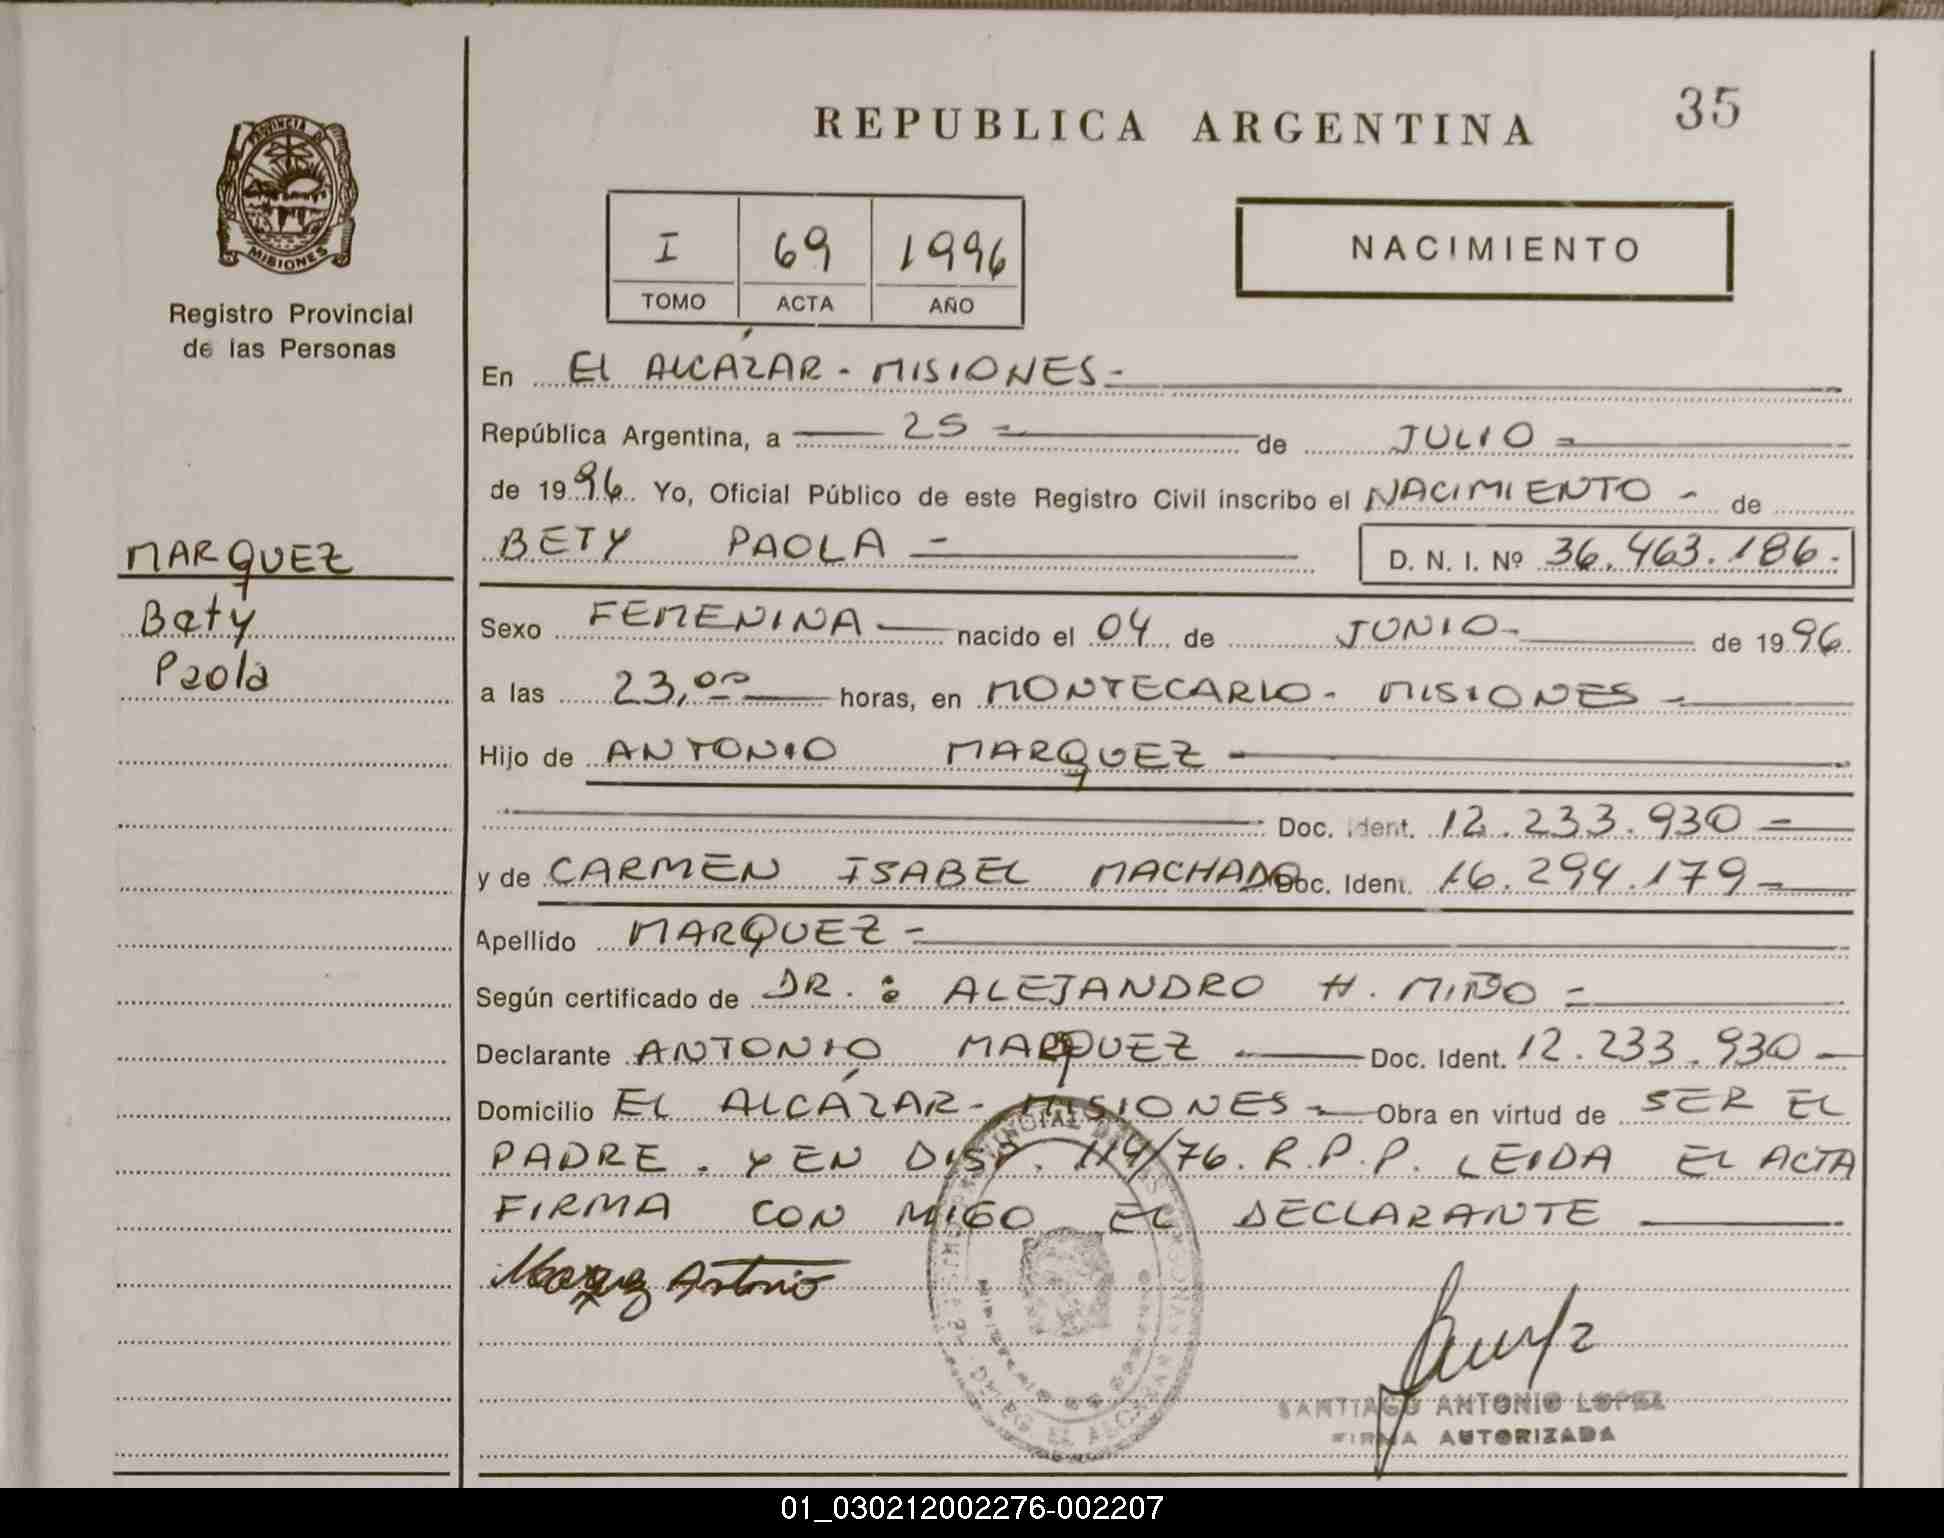 REPUBLICA ARGENTINA
35
PROVINCIA DE
MISIONES
Registro Provincial
de las Personas
I 69 1996
TOMO ACTA AÑO
NACIMIENTO
En EL ALCÁZAR - MISIONES -
República Argentina, a 25 - de JULIO -
de 1996 Yo, Oficial Público de este Registro Civil inscribo el NACIMIENTO - de
BETY PAOLA - D. N. I. Nº 36.463.186.
MARQUEZ
Bety
Paola
Sexo FEMENINA nacido el 04 de JUNIO - de 1996
a las 23,00 horas, en MONTECARLO - MISIONES
Hijo de ANTONIO MARQUEZ
Doc. Ident. 12.233.930 -
y de CARMEN ISABEL MACHADO Doc. Ident. 16.294.179 -
Apellido MARQUEZ -
Según certificado de DR.: ALEJANDRO H. MIÑO -
Declarante ANTONIO MARQUEZ Doc. Ident. 12.233.930
Domicilio EL ALCÁZAR - MISIONES - Obra en virtud de SER EL
PADRE. Y EN DISP. 114/76. R.P.P. LEIDA EL ACTA
FIRMA CON MIGO EL DECLARANTE
Marquez Antonio
SANTIAGO ANTONIO LOPEZ
FIRMA AUTORIZADA
01_030212002276-002207